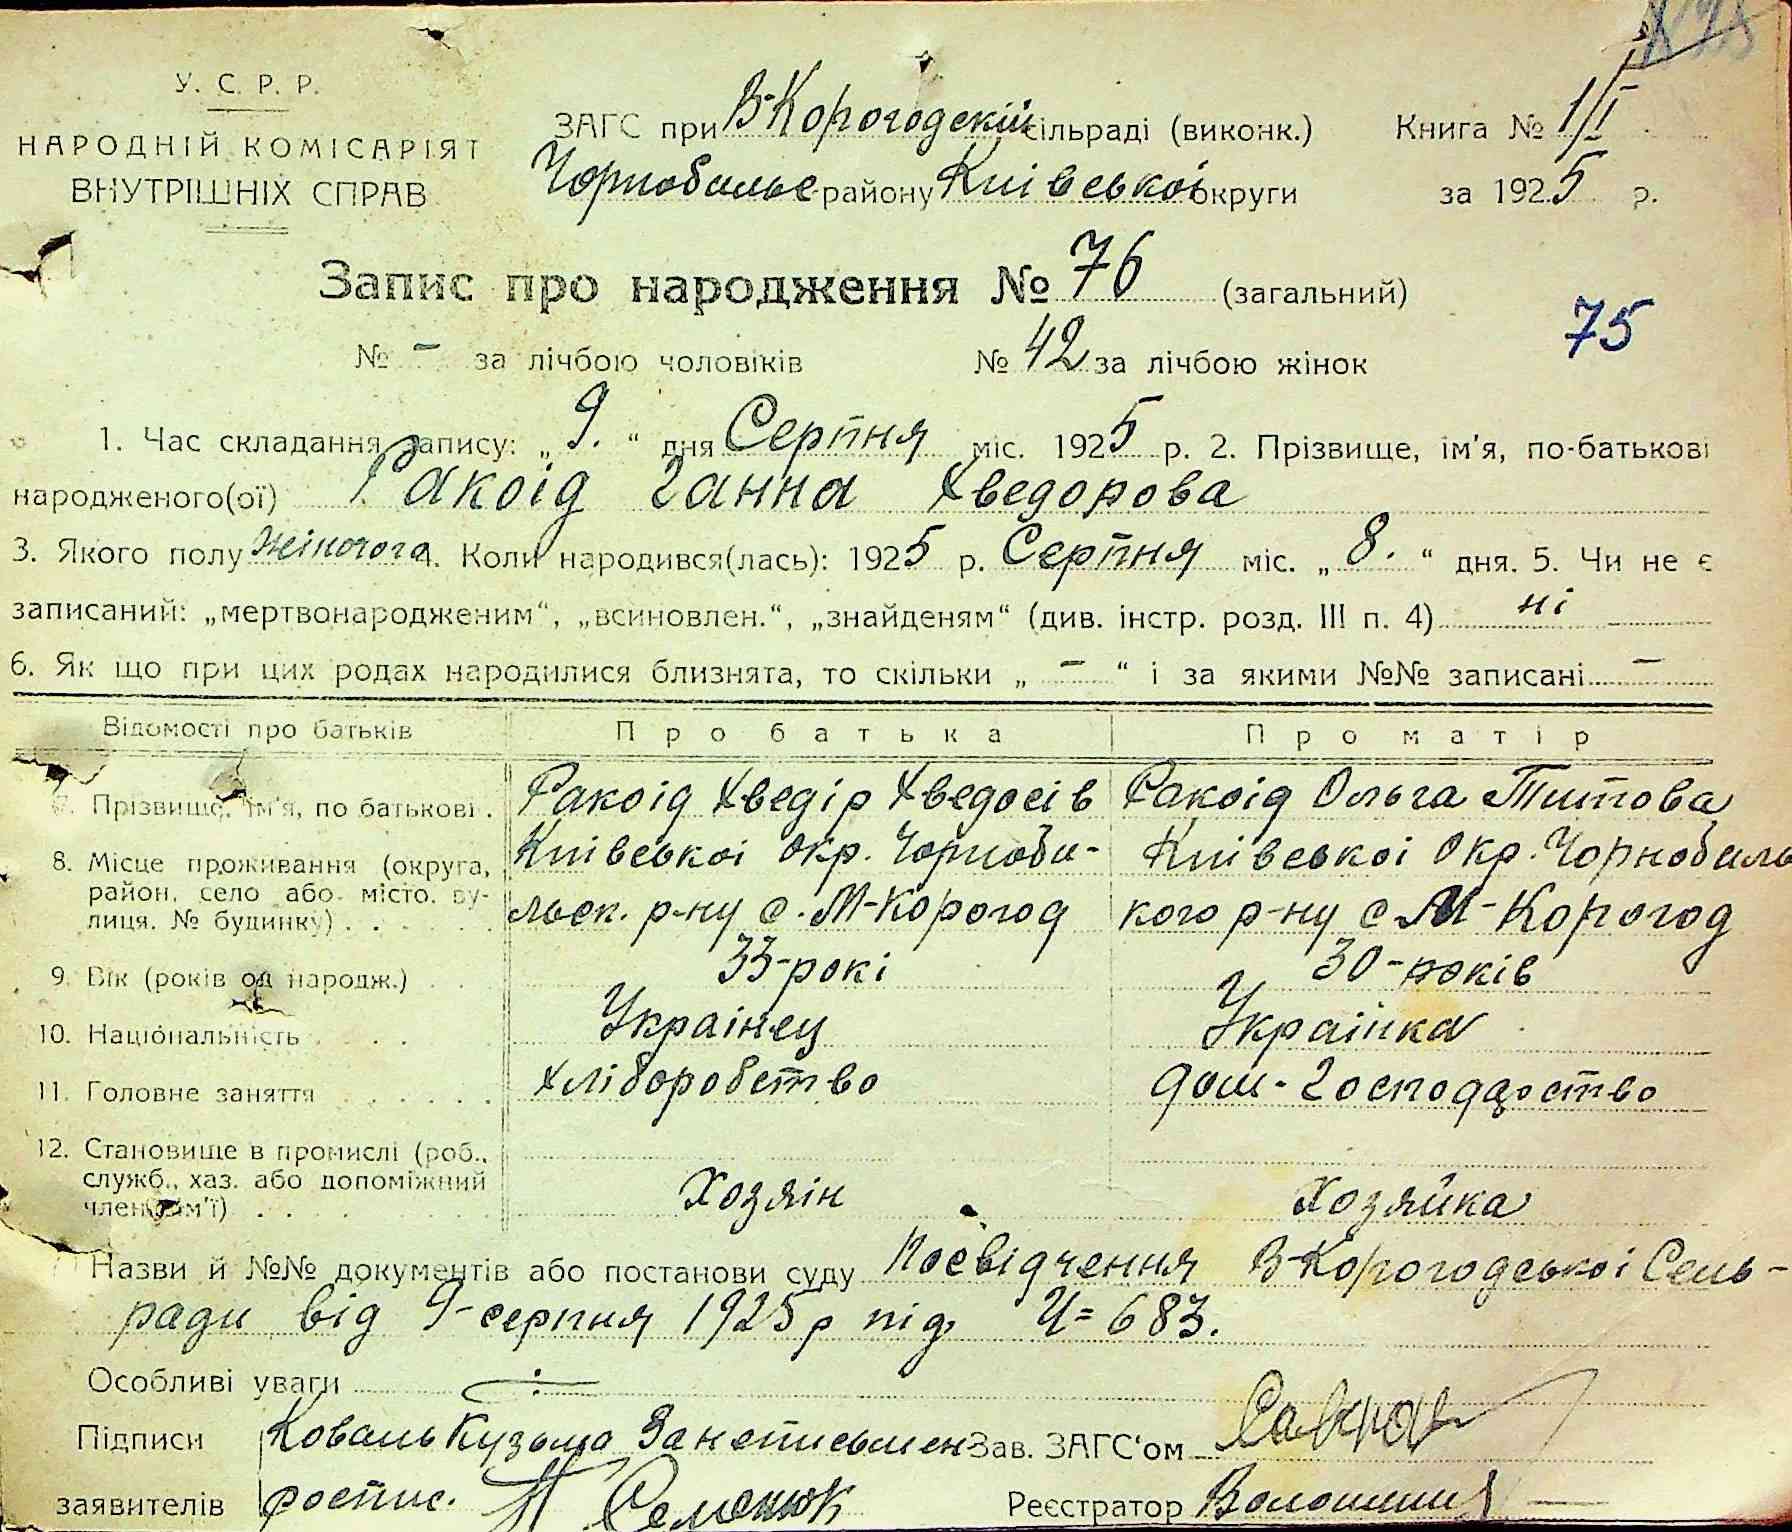 У. С. Р. Р.
НАРОДНІЙ КОМІСАРІЯТ
ВНУТРІШНІХ СПРАВ
ЗАГС при В-Корогодскій сільраді (виконк.)
Чорнобильс району Київської округи
Книга № 1/I
за 1925 р.
Запис про народження № 76 (загальний)
75
№ - за лічбою чоловіків № 42 за лічбою жінок
1. Час складання запису: „ 9. “ дня Серпня міс. 1925 р. 2. Прізвище, ім'я, по-батькові
народженого(ої) Ракоїд Ганна Хведорова
3. Якого полу жіночого 4. Коли народився(лась): 1925 р. Серпня міс. „ 8. “ дня. 5. Чи не є
записаний: „мертвонародженим“, „всиновлен.“, „знайденям“ (див. інстр. розд. III п. 4) ні
6. Як що при цих родах народилися близнята, то скільки „ - “ і за якими №№ записані -
Відомості про батьків Про батька Про матір
7. Прізвище, ім'я, по батькові . Ракоїд Хведір Хведосів Ракоїд Ольга Титова
8. Місце проживання (округа, район, село або місто, вулиця, № будинку) . . . . .
Київської Окр. Чорноби-
льск. р-ну с. М-Корогод
Київської Окр. Чорнобиль
кого р-ну с М-Корогод
9. Вік (років од народж.) . . 33-рокі 30-років
10. Національність . . . . Українец Українка
11. Головне заняття . . . . . . хліборобство дом-Господарство
12. Становище в промислі (роб., служб., хаз. або допоміжний член сім'ї) . . . . . .
Хозяін Хозяйка
Назви й №№ документів або постанови суду Посвідчення В-Корогодської Сель-
ради від 9-серпня 1925 р під Ч= 683.
Особливі уваги
Підписи Коваль Кузьма За неписьмен Зав. ЗАГС'ом
заявителів роспис. Семенюк Реєстратор